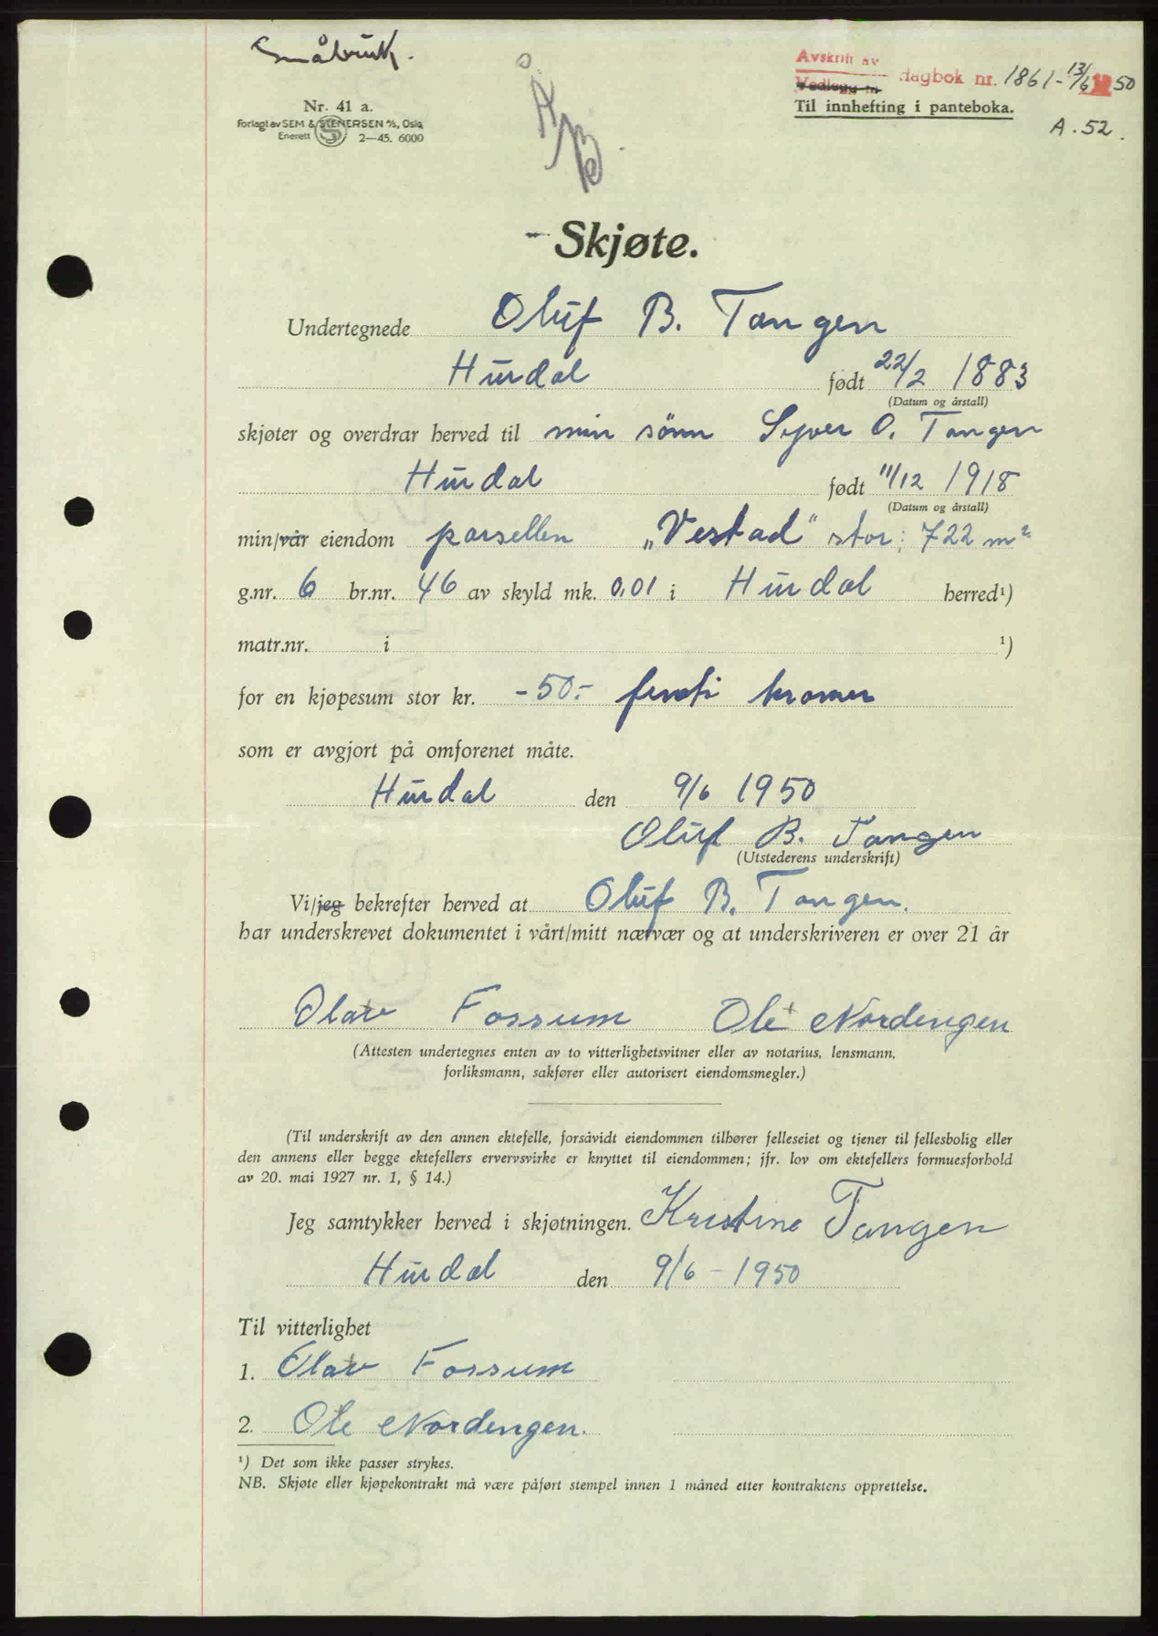 Småbruk.
Avskrift av
Vedlegg til dagbok nr. 1861-13/6 1950
Til innhefting i panteboka.
A. 52.
Nr. 41 a.
Forlagt av SEM & STENERSEN A/S, Oslo
Enerett S 2—45. 6000
- Skjøte.
Undertegnede Oluf B. Tangen
Hurdal født 22/2 1883
(Datum og årstall)
skjøter og overdrar herved til min sønn Syver O. Tangen
Hurdal født 11/12 1918
(Datum og årstall)
min/vår eiendom parsellen „Vestad“ stor: 722 m²
g.nr. 6 br.nr. 46 av skyld mk. 0,01 i Hurdal herred¹)
matr.nr. i ¹)
for en kjøpesum stor kr. -50.- femti kroner
som er avgjort på omforenet måte.
Hurdal den 9/6 1950
Oluf B. Tangen
(Utstederens underskrift)
Vi/jeg bekrefter herved at Oluf B. Tangen.
har underskrevet dokumentet i vårt/mitt nærvær og at underskriveren er over 21 år
Olav Fossum Ole Nordengen
(Attesten undertegnes enten av to vitterlighetsvitner eller av notarius, lensmann,
forliksmann, sakfører eller autorisert eiendomsmegler.)
(Til underskrift av den annen ektefelle, forsåvidt eiendommen tilhører felleseiet og tjener til fellesbolig eller
den annens eller begge ektefellers ervervsvirke er knyttet til eiendommen; jfr. lov om ektefellers formuesforhold
av 20. mai 1927 nr. 1, § 14.)
Jeg samtykker herved i skjøtningen. Kristine Tangen
Hurdal den 9/6 - 1950
Til vitterlighet
1. Olav Fossum
2. Ole Nordengen.
¹) Det som ikke passer strykes.
NB. Skjøte eller kjøpekontrakt må være påført stempel innen 1 måned etter kontraktens opprettelse.